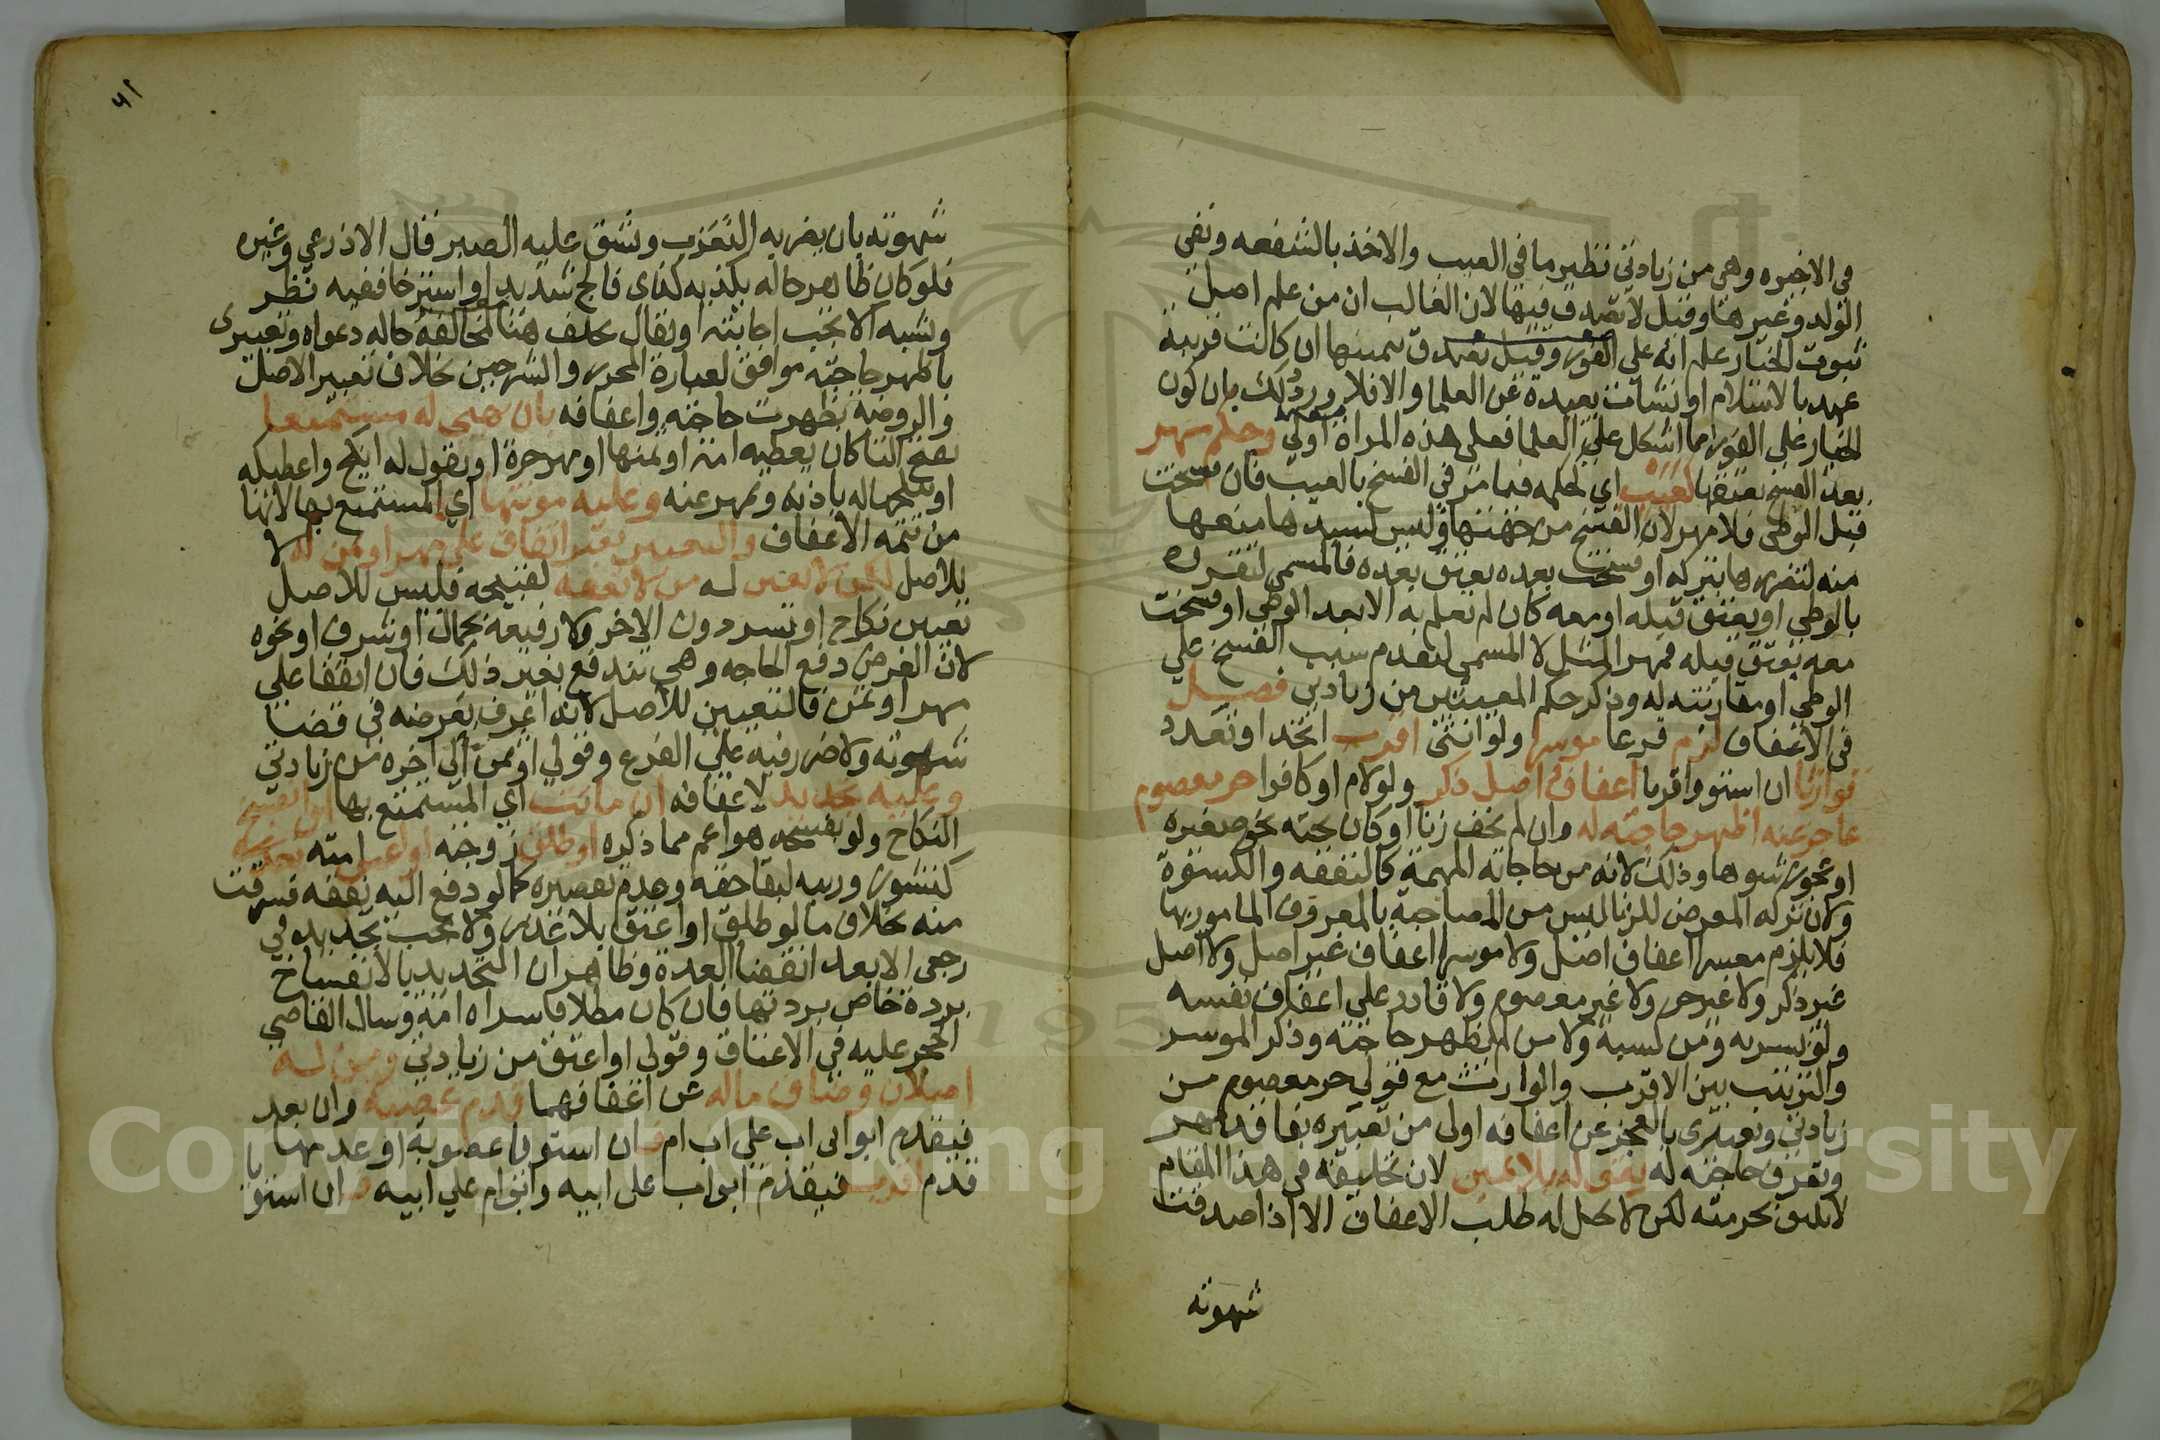 في الاخيره وهي من زيادتي نظير ما في العيب والاخذ بالشفعه ونفي
الولد وغيرها وقيل لا تصدق فيها لان الغالب ان من علم اصل
ثبوت الخيار علم انه على الفور وقيل تصدق بيمينها ان كانت قريبة
عهد بالاسلام او نشات بعيدة عن العلما والا فلا ورد ذلك بان كون
الخيار على الفور مما اشكل على العلما فعلى هذه المراة اولى وحكم مهر
بعد الفسخ بعتقها لعيب اي لحكمه فيما مر في الفسخ بالعيب فان فسخت
قبل الوطي فلا مهر لان الفسخ من جهتها وليس لسيدها منعها
منه لتضررها بتركه او فسخت بعده بعتق بعده فالمسمى لتقرره
بالوطي او بعتق قبله او معه كان لم تعلم به الا بعد الوطي او فسخت
معه بعتق قبله فمهر المثل لا المسمى لتقدم سبب الفسخ على
الوطي او مقارنته له وذكر حكم المعيتين من زيادتي فصل
في الاعفاف لزم فرعا موسرا ولو انثى اقرب اتحد او تعدد
فوارثا ان استووا قربا اعفاف اصل ذكر ولو لام او كافرا حر معصوم
عاجز عنه اظهر حاجته له وان لم يخف زنا او كان تحته نحو صغيره
او عجوز شوها وذلك لانه من حاجاته المهمة كالنفقه والكسوة
ولان تركه المعرض للزنا ليس من المصاحبة بالمعروف المامور بها
فلا يلزم معسرا اعفاف اصل ولا موسرا اعفاف غير اصل ولا اصل
غير ذكر ولا غير حر ولا غير معصوم ولا قادر على اعفاف نفسه
ولو بسريه ومن كسبه ولا من لم يظهر حاجته وذكر الموسر
والترتيب بين الاقرب والوارث مع قولي حر معصوم من
زيادتي وتعبيري بالعجز عن اعفافه اولى من تعبيره بفاقد مهر
وتعرف حاجته له بقوله بلا يمين لان تحليفه في هذا المقام
لا يليق بحرمته لكن لا يحل له طلب الاعفاف الا اذا صدقت
شهوته
٤١
شهوته بان يضر به التعزب ويشق عليه الصبر قال الاذرعي وغيره
فلو كان ظاهر حاله يكذبه كذي فالج شديد او استرخا ففيه نظر
ويشبه الا تجب اجابته او يقال يحلف هنا لمخالفة حاله دعواه وتعبيرى
بالمهر حاجته موافق لعبارة المحرر والشرحين بخلاف تعبير الاصل
والروضة بظهرت حاجته واعفافه بان يهيى له مستمتعا
بفتح التا كان يعطيه امة او ثمنها او مهر حرة او يقول له انكح واعطيكه
او ينكحها له باذنه ويمهر عنه وعليه مونتها اي المستمتع بها لانها
من تتمة الاعفاف والتعيين بغير اتفاق على مهر او ثمن له لا
للاصل لكن لا يعين له من لا تعفه لقبيحه فليس للاصل
تعيين نكاح او تسر دون الاخر ولا رفيعة بجمال او شرف او نحوه
لان الغرض دفع الحاجه وهي تندفع بغير ذلك فان اتفقا على
مهر او ثمن فالتعيين للاصل لانه اعرف بغرضه في قضا
شهوته ولا ضرر فيه على الفرع وقولي او ثمن الى اخره من زيادتي
وعليه تجديد لاعفافه ان ماتت اي المستمتع بها او انفسخ
النكاح ولو بفسخه هو اعم مما ذكره او طلق زوجته او اعتق امته بعذر
كنشوز وريبه لبقا حقه وعدم تقصيره كما لو دفع اليه نفقه فسرقت
منه بخلاف ما لو طلق او اعتق بلا عذر ولا يجب تجديد في
رجعي الا بعد انقضا العدة وظاهر ان التجديد بالانفساخ
بردة خاص بردتها فان كان مطلاقا سراه امة وسال القاضي
الحجر عليه في الاعتاق وقولي او اعتق من زيادتي ومن له
اصلان وضاق ماله عن اعفافهما قدم عصبة وان بعد
فيقدم ابو ابي اب على اب ام فان استويا عصوبة او عدمها
قدم اقرب فيقدم ابو اب على ابيه وابو ام على ابيه فان استويا
Copyright © King Saud University